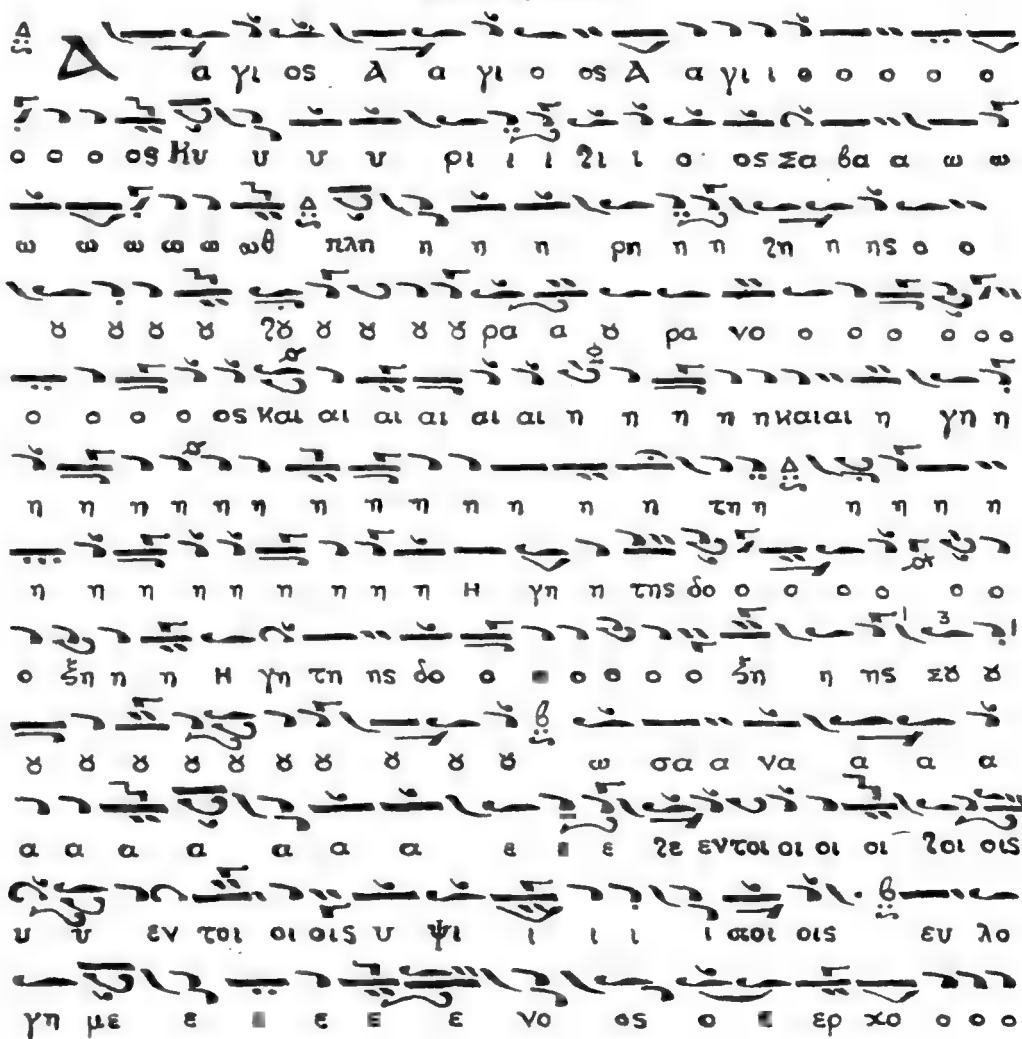 Α α γι ος Α α γι ο ος Α α γι ι ο ο ο ο ο
ο ο ο ος Κυ υ υ υ ρι ι ι ι ι ο ος Σα βα α ω ω
ω ω ω ω ω ωθ πλη η η η ρη η η η η ης ο ο
ȣ ȣ ȣ ȣ ȣ ȣ ȣ ȣ ȣ ρα α ȣ ρα νο ο ο ο ο ο ο
ο ο ο ο ος Και αι αι αι αι αι η η η η η και αι η γη η
η η η η η η η η η η η η τη η η η η η
η η η η η η η η η Η γη η της δο ο ο ο ο ο ο
ο ξη η η Η γη τη ης δο ο ο ο ο ο ξη η ης Σȣ ȣ
ȣ ȣ ȣ ȣ ȣ ȣ ȣ ȣ ȣ ȣ ω σα α να α α α
α α α α α α α ε ε ε εν τοι οι οι οι οι οις
υ υ εν τοι οι οις υ ψι ι ι ι ι στοι οις ευ λο
γη με ε ε ε ε νο ος ο ερ χο ο ο ο